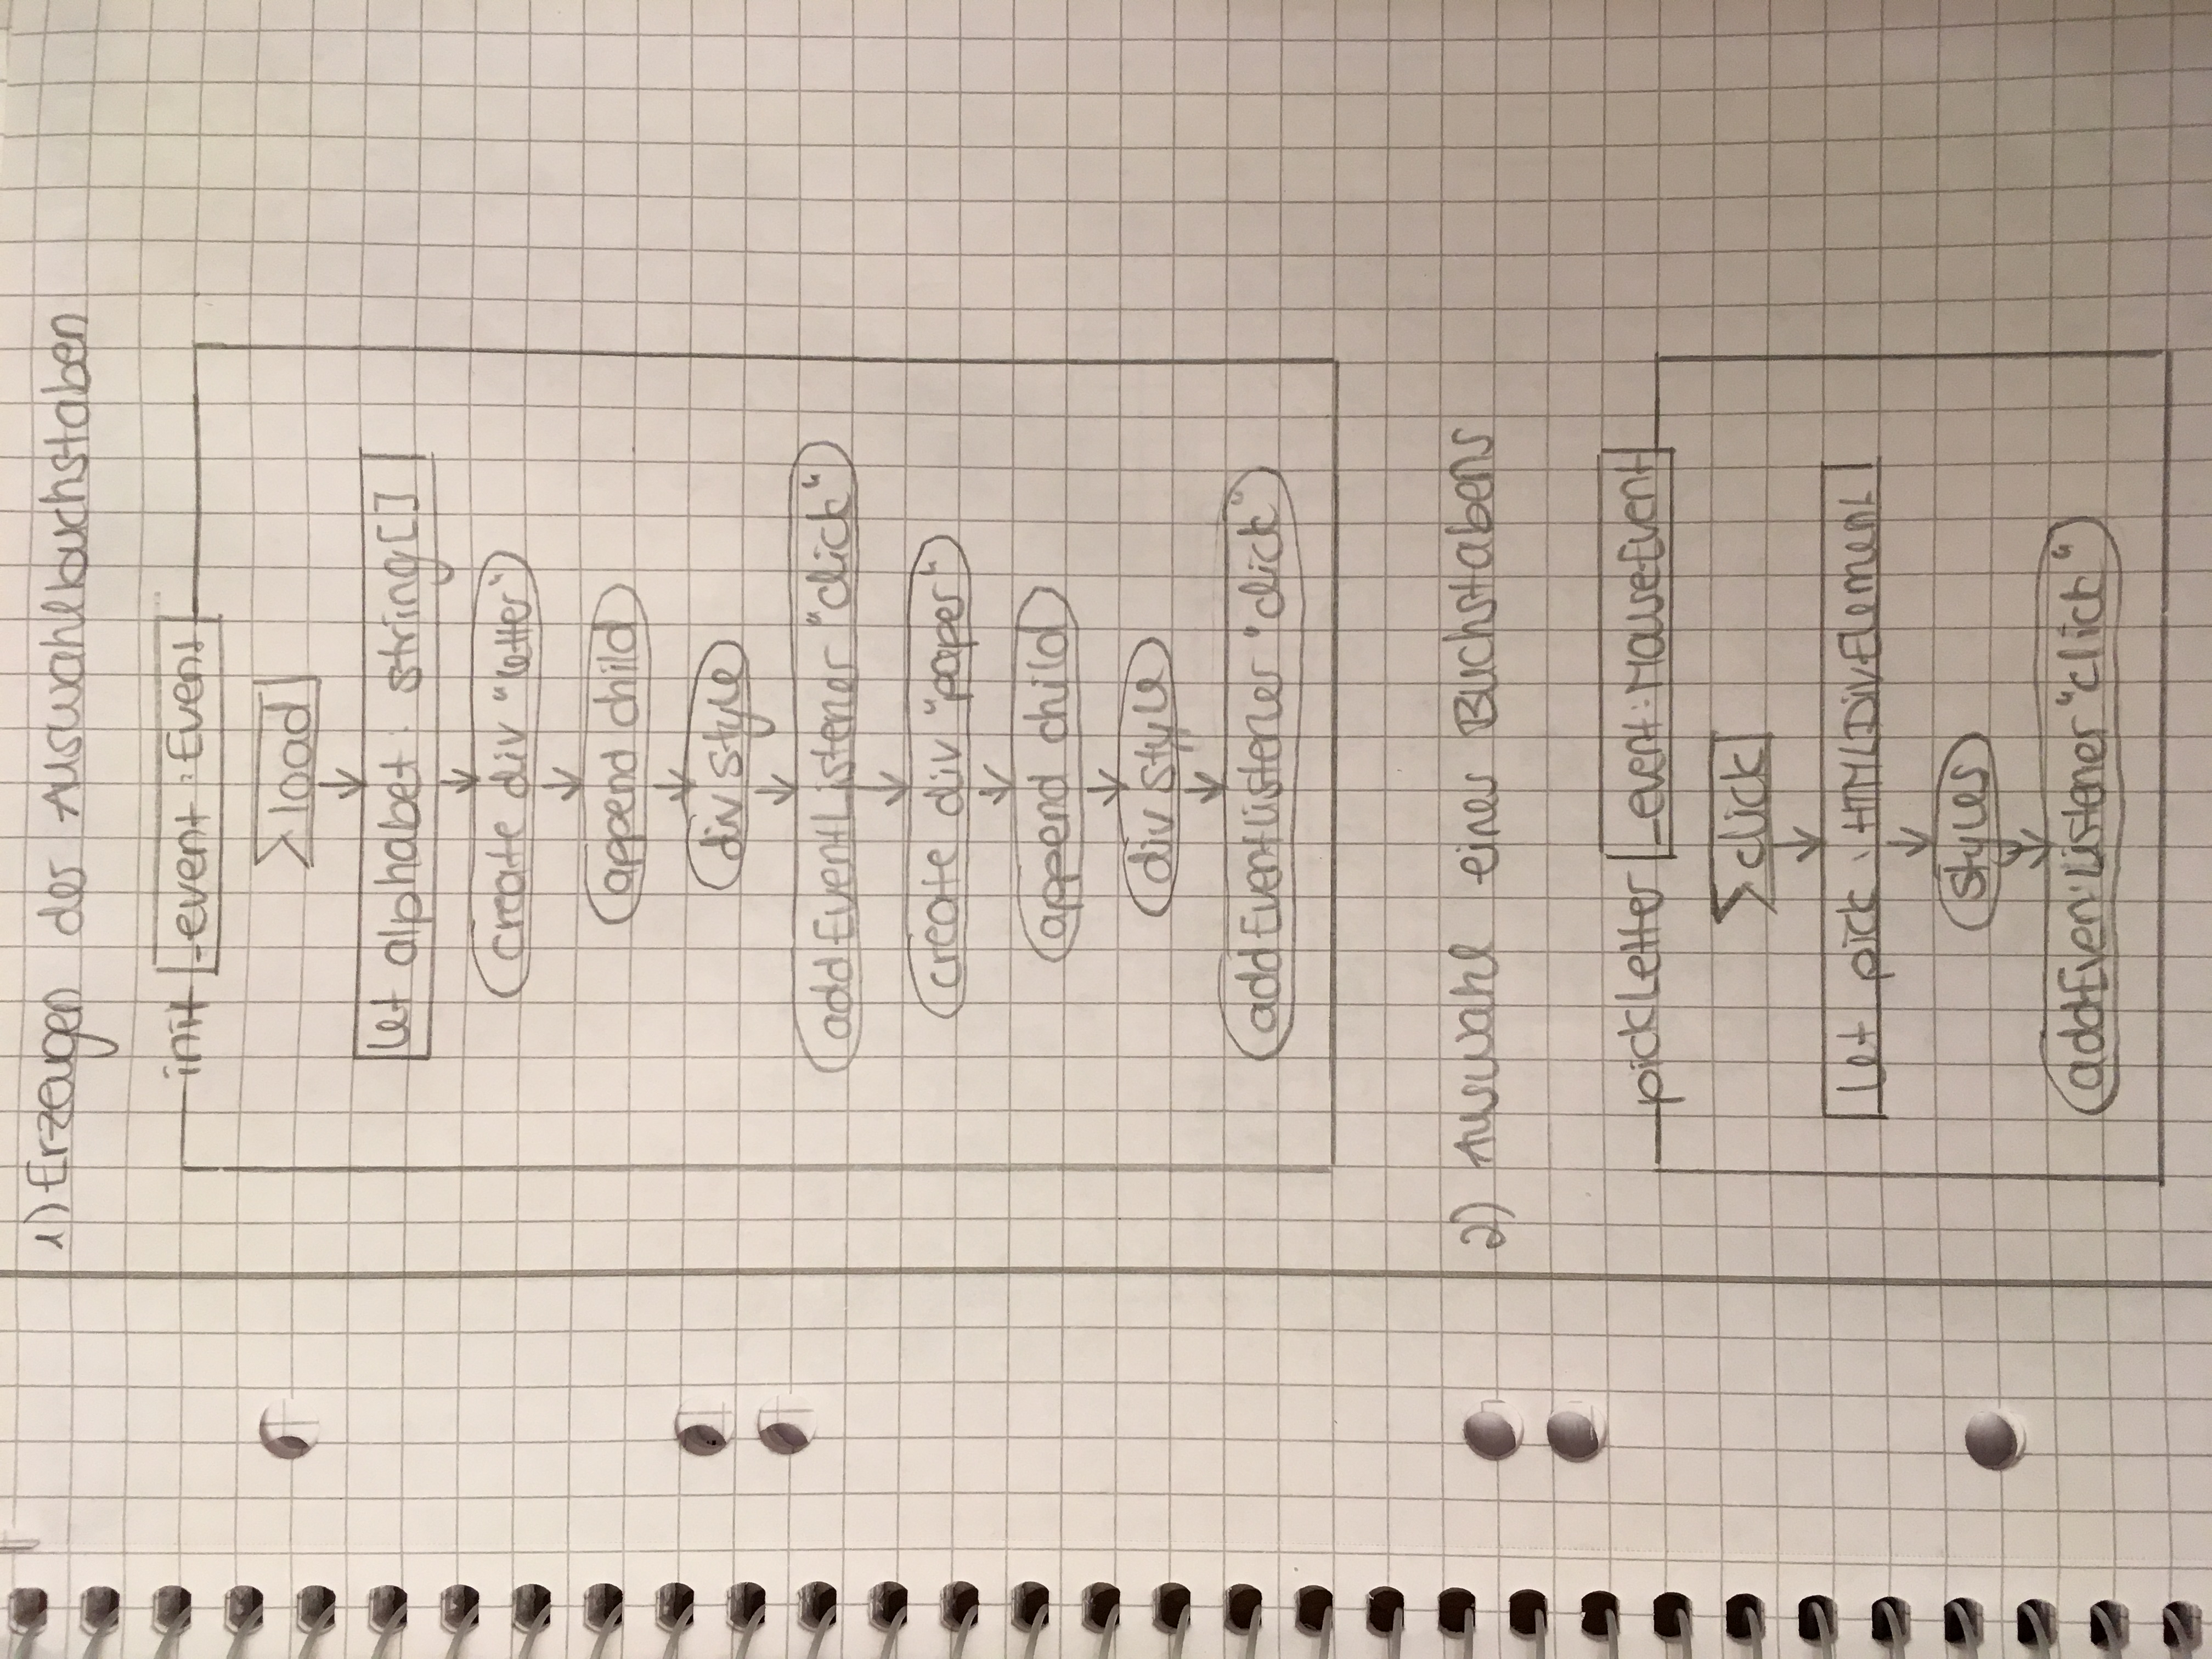 1) Erzeugen der Auswahlbuchstaben
init _event : Event
load
let alphabet : string[]
create div "letter"
append child
div style
addEventListener "click"
create div "paper"
append child
div style
addEventListener "click"
2) Auswahl eines Buchstabens
pickLetter _event : MouseEvent
click
let pick : HTMLDivElement
styles
addEventListener "click"